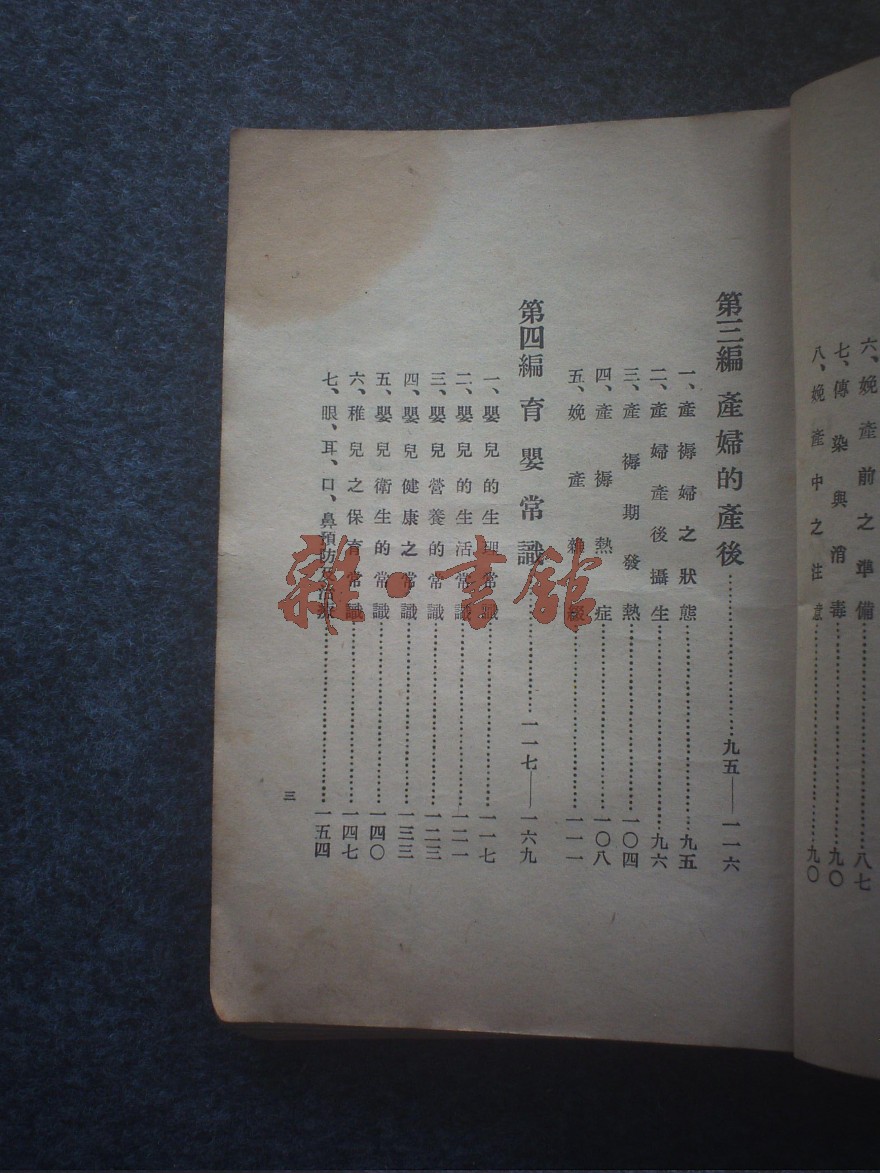 六、娩產前之準備……八七
七、傳染與消毒……九〇
八、娩產中之注意……九〇
第三編 產婦的產後……九五—一一六
一、產褥婦之狀態……九五
二、產婦產後攝生……九六
三、產褥期發熱……一〇四
四、產褥熱症……一〇八
五、娩產雜……一一一
第四編 育嬰常識……一一七—一六九
一、嬰兒的生理常識……一一七
二、嬰兒的生活常識……一二一
三、嬰兒營養的常識……一二三
四、嬰兒健康之常識……一三三
五、嬰兒衛生的常識……一四〇
六、稚兒之保育常識……一四七
七、眼、耳、口、鼻預防及治療……一五四
三
雜·書館